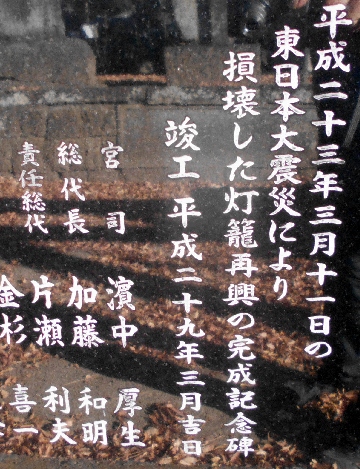 平成二十三年三月十一日の
東日本大震災により
損壊した灯籠再興の完成記念碑
竣工 平成二十九年三月吉日
宮司 濵中 厚生
総代長 加藤 和明
責任総代 片瀬 利夫
金杉 喜一